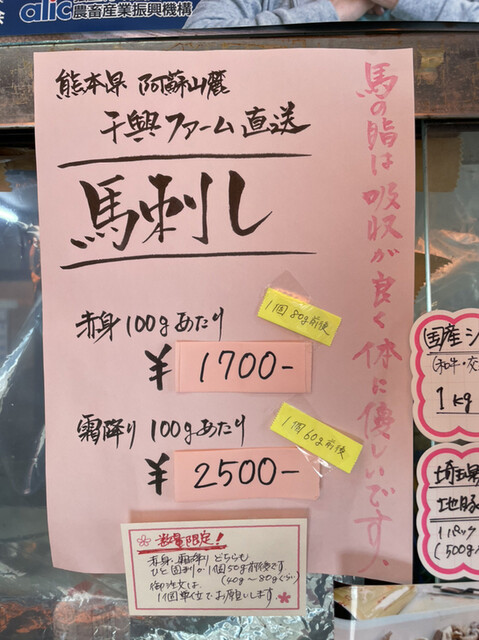 alic 農畜産業振興機構
熊本県 阿蘇山麓
千興ファーム直送
馬刺し
馬の脂は吸収が良く体に優しいです、
赤身 100gあたり
1個80g前後
¥1700-
霜降り 100gあたり
1個60g前後
¥2500-
数量限定!
赤身、霜降り どちらも
ひと固まり(1個50g前後です
(40g〜80gくらい)
御注文は、
1個単位でお願いします
国産シ
(和牛・交
1kg
埼玉県
地豚
1パック
(500g